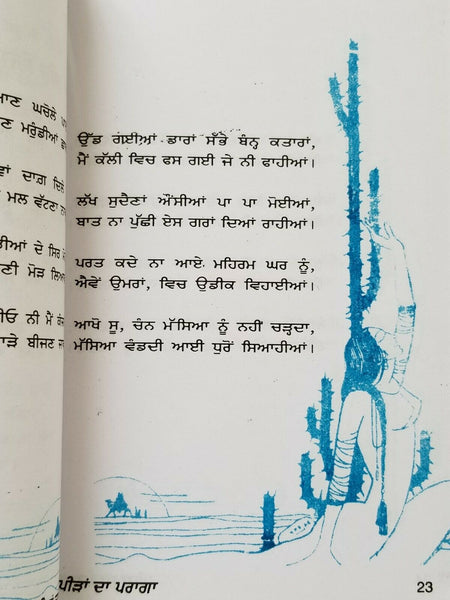 ਘਚੋਲੇ
ਮਰੁੰਡੀਆਂ
ਦਾਗ਼
ਮਲ ਵੱਟਣਾ
ਦੇ ਸਿਰ
ਮੋੜ
ਨੀ ਮੈਂ
ਬੀਜਣ
ਉੱਡ ਗਈਆਂ ਡਾਰਾਂ ਸੱਭੇ ਬੰਨ੍ਹ ਕਤਾਰਾਂ,
ਮੈਂ ਕੱਲੀ ਵਿਚ ਫਸ ਗਈ ਜੋ ਨੀ ਫਾਹੀਆਂ।
ਲੱਖ ਸੁਦੈਣਾਂ ਔਂਸੀਆਂ ਪਾ ਪਾ ਮੋਈਆਂ,
ਬਾਤ ਨਾ ਪੁੱਛੀ ਏਸ ਗਰਾਂ ਦਿਆਂ ਰਾਹੀਆਂ।
ਪਰਤ ਕਦੇ ਨਾ ਆਏ ਮਹਿਰਮ ਘਰ ਨੂੰ,
ਐਵੇਂ ਉਮਰਾਂ, ਵਿਚ ਉਡੀਕ ਵਿਹਾਈਆਂ।
ਆਖੋ ਸੂ, ਚੰਨ ਮੱਸਿਆ ਨੂੰ ਨਹੀਂ ਚੜ੍ਹਦਾ,
ਮੱਸਿਆ ਵੰਡਦੀ ਆਈ ਧੁਰੋਂ ਸਿਆਹੀਆਂ।
ਪੀੜਾਂ ਦਾ ਪਰਾਗਾ
23